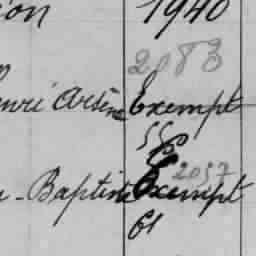 ion 1940
2083
enri Arsène Exempt
55
E 2057
n-Baptiste Exempt
61